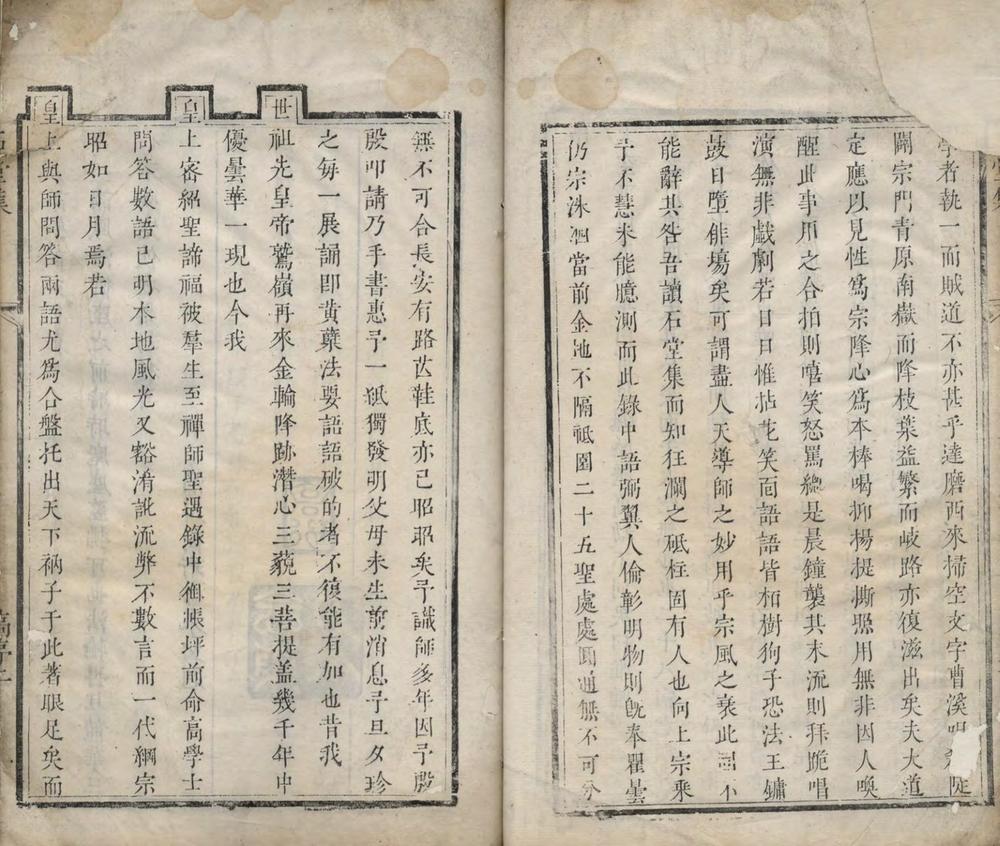 學者執一而賊道不亦甚乎達磨西來掃空文字曹溪唱 陡
闢宗門青原南嶽而降枝葉益繁而岐路亦復滋出矣夫大道
定應以見性爲宗降心爲本棒喝抑揚提撕照用無非因人喚
醒此事用之合拍則嘻笑怒罵總是晨鐘襲其末流則拜跪唱
演無非戲劇若日日惟拈花笑而語語皆栢樹狗子恐法王鏞
鼓日墮俳場矣可謂盡人天導師之妙用乎宗風之衰此 不
能辭其咎吾讀石堂集而知狂瀾之砥柱固有人也向上宗乘
予不慧未能臆測而此錄中語弼翼人倫彰明物則旣奉瞿曇
仍宗洙泗當前金池不隔祗園二十五聖處處圓通無不可分
無不可合長安有路芒鞋底亦已昭昭矣予識師多年因予殷
殷叩請乃手書惠予一紙獨發明父母未生前消息予旦夕珍
之每一展誦卽黃蘗法要語語破的者不復能有加也昔我
世祖先皇帝鷲嶺再來金輪降跡潛心三藐三菩提蓋幾千年中
優曇華一現也今我
皇上密紹聖諦福被羣生至禪師聖遇錄中御帳坪前命高學士
問答數語已明本地風光又豁淆訛流弊不數言而一代綱宗
昭如日月焉若
皇上與師問答兩語尤爲合盤托出天下衲子于此著眼足矣而